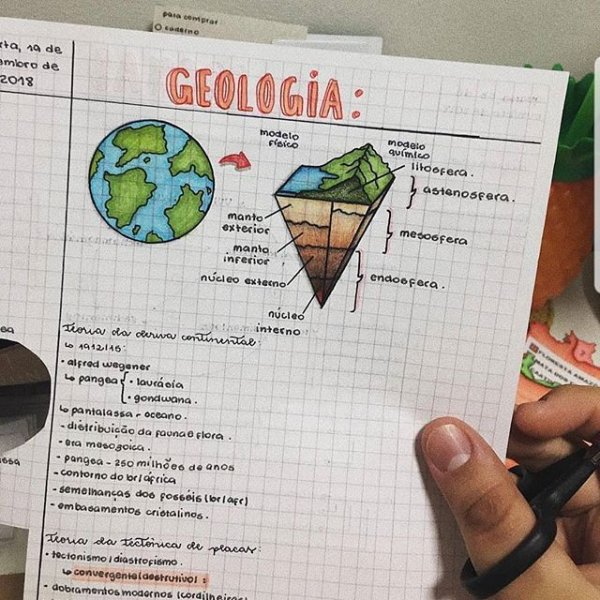 para comprar
caderno
rta, 19 de
embro de
2018
GEOLOGIA:
modelo
físico
modelo
químico
litosfera.
astenosfera.
manto
exterior
mesosfera
manto
inferior
núcleo externo
endosfera.
núcleo
interno
Teoria da deriva continental:
↳ 1912/15:
• alfred wegener
↳ pangea { • laurásia
• gondwana.
↳ pantalassa - oceano.
- distribuição da fauna e flora.
- era mesozoica.
- pangea - 250 milhões de anos
- contorno do br/áfrica
- semelhanças dos fosséis (br/afr)
- embasamentos cristalinos.
Teoria da tectônica de placas:
• tectonismo/diastrofismo.
↳ convergente (destrutivo):
- dobramentos modernos (cordilheiras)
FLORESTA AMAZ
MATA DOS